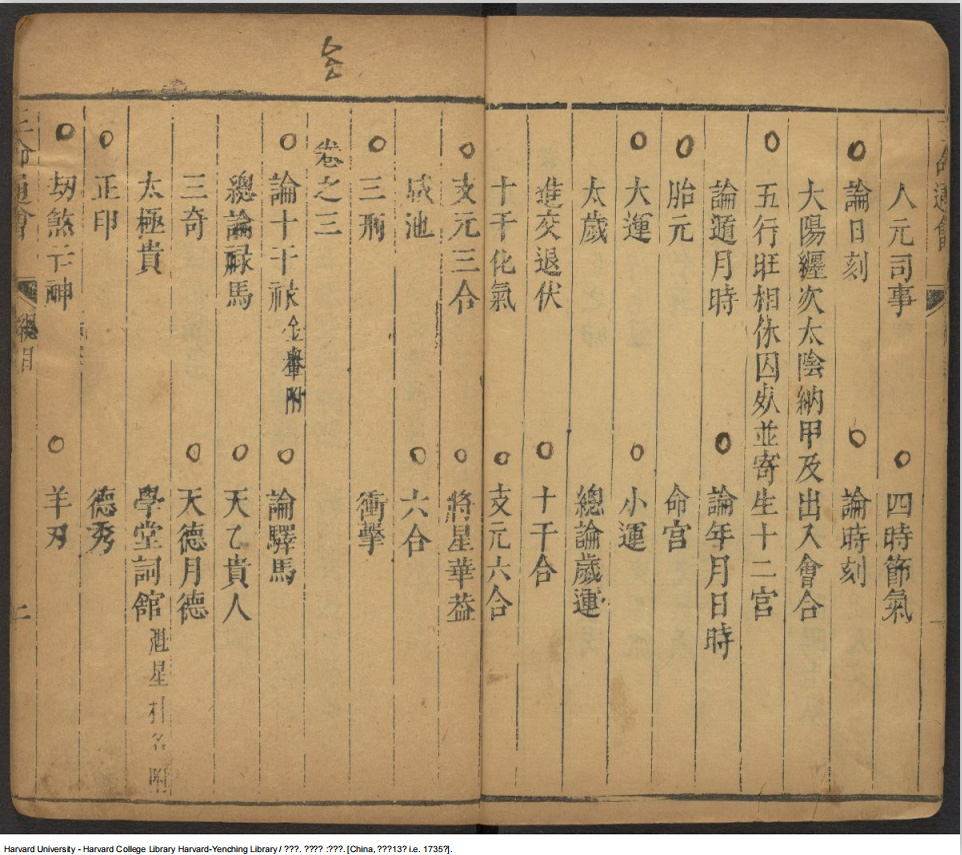 命通會
人元司事　四時節氣
論日刻　論時刻
大陽纏次太陰納甲及出入會合
五行旺相休囚死並寄生十二宮
論遁月時　論年月日時
胎元　命宮
大運　小運
太歲　總論歲運
進交退伏　十干合
十干化氣　支元六合
支元三合　將星華蓋
咸池　六合
三刑　衝擊
卷之三
論十干祿金轝附　論驛馬
總論祿馬　天乙貴人
三奇　天德月德
太極貴　學堂詞館
正印　德秀
劫煞亡神　羊刃
三命通會　總目　二
Harvard University - Harvard College Library Harvard-Yenching Library / ???. ???? :???. [China, ???13? i.e. 1735?].